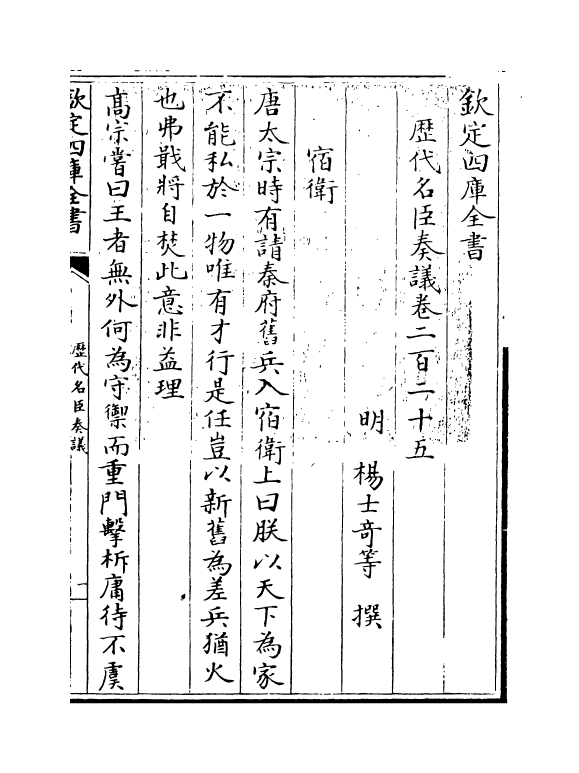 欽定四庫全書
歴代名臣奏議卷二百二十五
明 楊士竒等 撰
宿衛
唐太宗時有請秦府舊兵入宿衛上曰朕以天下為家
不能私於一物唯有才行是任豈以新舊為差兵猶火
也弗戢將自焚此意非益理
髙宗嘗曰王者無外何為守禦而重門擊柝庸待不虞
欽定四庫全書
歴代名臣奏議
一